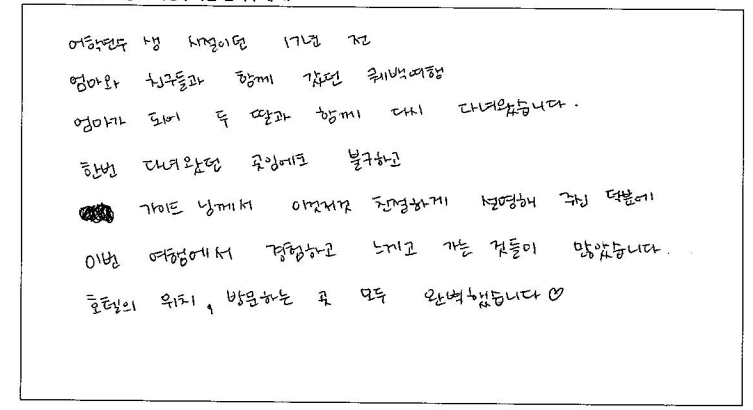 어학연수 생 시절이던 17년 전
엄마와 친구들과 함께 갔던 퀘백여행
엄마가 되어 두 딸과 함께 다시 다녀왔습니다.
한번 다녀왔던 곳임에도 불구하고
가이드 님께서 이것저것 친절하게 설명해 주신 덕분에
이번 여행에서 경험하고 느끼고 가는 것들이 많았습니다.
호텔의 위치, 방문하는 곳 모두 완벽했습니다♡